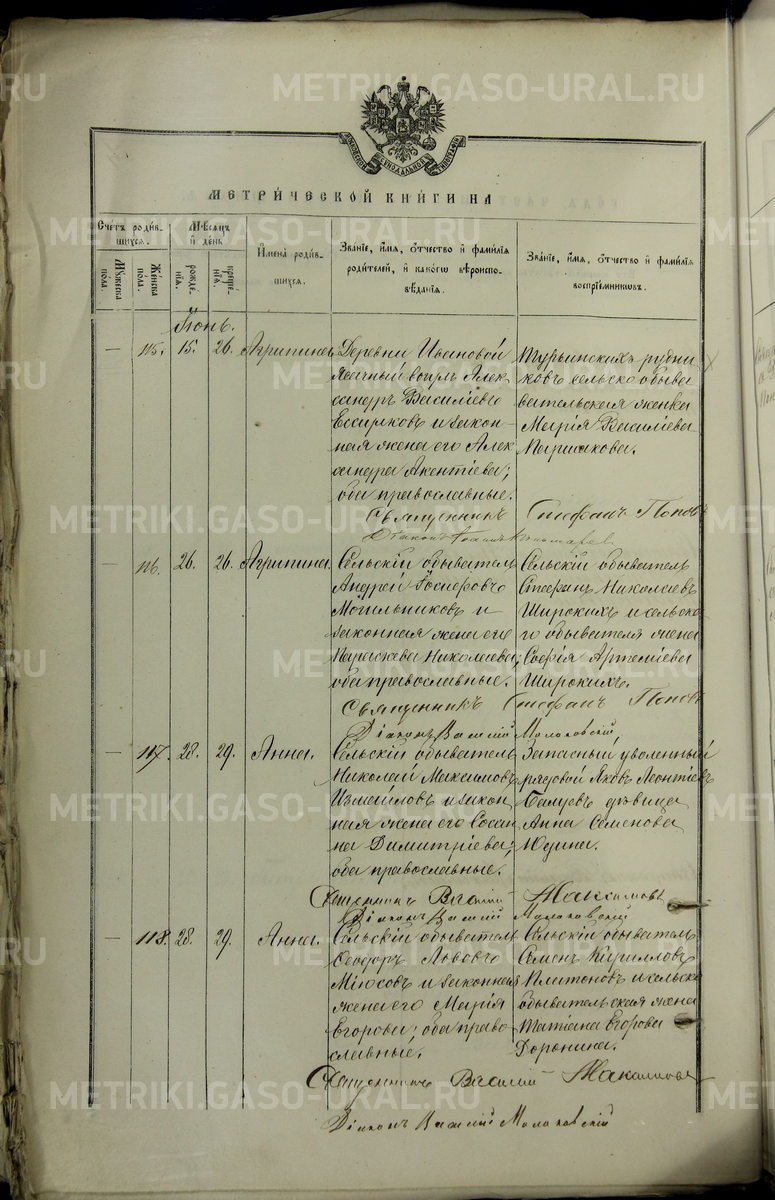 METRIKI.GASO-URAL.RU
МОСКОВСКОЙ СѴНОДАЛЬНОЙ ТИПОГРАФІИ
МЕТРИ́ЧЕСКОЙ КНИ́ГИ НА
Сче́тъ роди́вшихся.
Мѣ́сяцъ и҆ де́нь
И҆мена̀ роди́вшихся.
Зва́ніе, и҆́мя, ѻ҆́тчество и҆ фами́лія родителей, и҆ како́гѡ вѣроисповѣ́данія.
Зва́ніе, и҆́мя, ѻ҆́тчество и҆ фами́лія воспріе́мникѡвъ.
Мꙋ́жеска по́ла.
Же́нска по́ла.
рожде́нія.
креще́нія.
Іюнь.
— 115. 15. 26. Агрипина. Деревни Ивановой
ясачный вогулъ Алек
сандръ Васильевъ
и закон
ная жена его Алек
сандра Акентіева;
оба православные.
Турьинскихъ рудни
ковъ сельско обыва
вательская женка
Марія Василіева
Паршакова.
Священникъ Стефанъ Поповъ
Діаконъ Іоаннъ
— 116. 26. 26. Агрипина. Сельскій обыватель
Андрей Іосифовъ
Могильниковъ и
законная жена его
Параскева Николаева;
оба православные.
Сельскій обыватель
Стефанъ Николаевъ
Широкихъ и сельска
го обывателя жена
Софія Артеміева
Широкихъ.
Священникъ Стефанъ Поповъ
Діаконъ Василій
— 117. 28. 29. Анна. Сельскій обыватель
Николай Максимовъ
Измайловъ и закон
ная жена его Сосан
на Димитріева;
оба православные.
Запасный уволенный
рядовой Яковъ Леонтіевъ
дѣвица
Анна Семенова
Юдина.
Священникъ Василій Максимовъ
Діаконъ Василій
— 118. 28. 29. Анна. Сельскій обыватель
Ѳеодоръ Львовъ
Мѣюсовъ и законная
жена его Марія
Егорова; оба право
славные.
Сельскій обыватель
Семенъ Кирилловъ
Платоновъ и сельско
обывательская жена
Татіана Егорова
Доронина.
Священникъ Василій Максимовъ
Діаконъ Василій